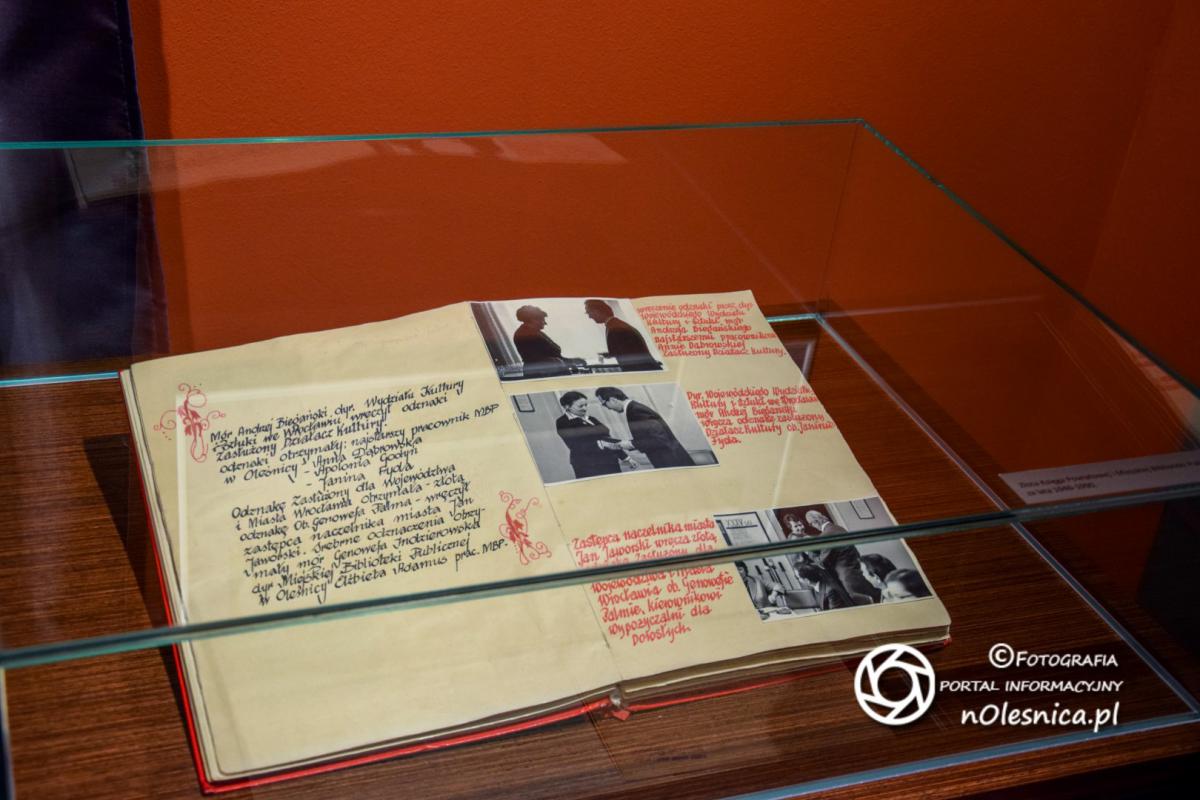 Mgr Andrzej Biegański, dyr. Wydziału Kultury
i Sztuki we Wrocławiu wręczył odznaki
Zasłużony Działacz Kultury.
odznaki otrzymały: najstarszy pracownik MBP
w Oleśnicy - Anna Dąbrowska
- Apolonia Godyń
- Janina Fyda
Odznakę Zasłużony dla Województwa
i Miasta Wrocławia otrzymała - złotą
odznakę ob. Genowefa Palma - wręczył
zastępca naczelnika miasta Jan
Jaworski. Srebrne odznaczenia otrzy-
mały mgr Genowefa
dyr. Miejskiej Biblioteki Publicznej
w Oleśnicy Elżbieta Adamus prac. MBP.
wręczenie odznaki przez dyr.
Wojewódzkiego Wydziału
Kultury i Sztuki mgr
Andrzeja Biegańskiego
najstarszemu pracownikowi
Annie Dąbrowskiej
Zasłużony Działacz Kultury.
Dyr. Wojewódzkiego Wydziału
Kultury i Sztuki we Wrocławiu
mgr Andrzej Biegański
wręcza odznakę zasłużony
Działacz Kultury ob. Janinie
Fyda.
Zastępca naczelnika miasta
Jan Jaworski wręcza złotą
Zasłużony dla
Województwa i Miasta
Wrocławia ob. Genowefie
Palmie, kierownikowi
wypożyczalni dla
dorosłych.
Złota Księga Powiatowej i Miejskiej Biblioteki
za lata 1946-1990
©Fotografia
portal informacyjny
nOlesnica.pl